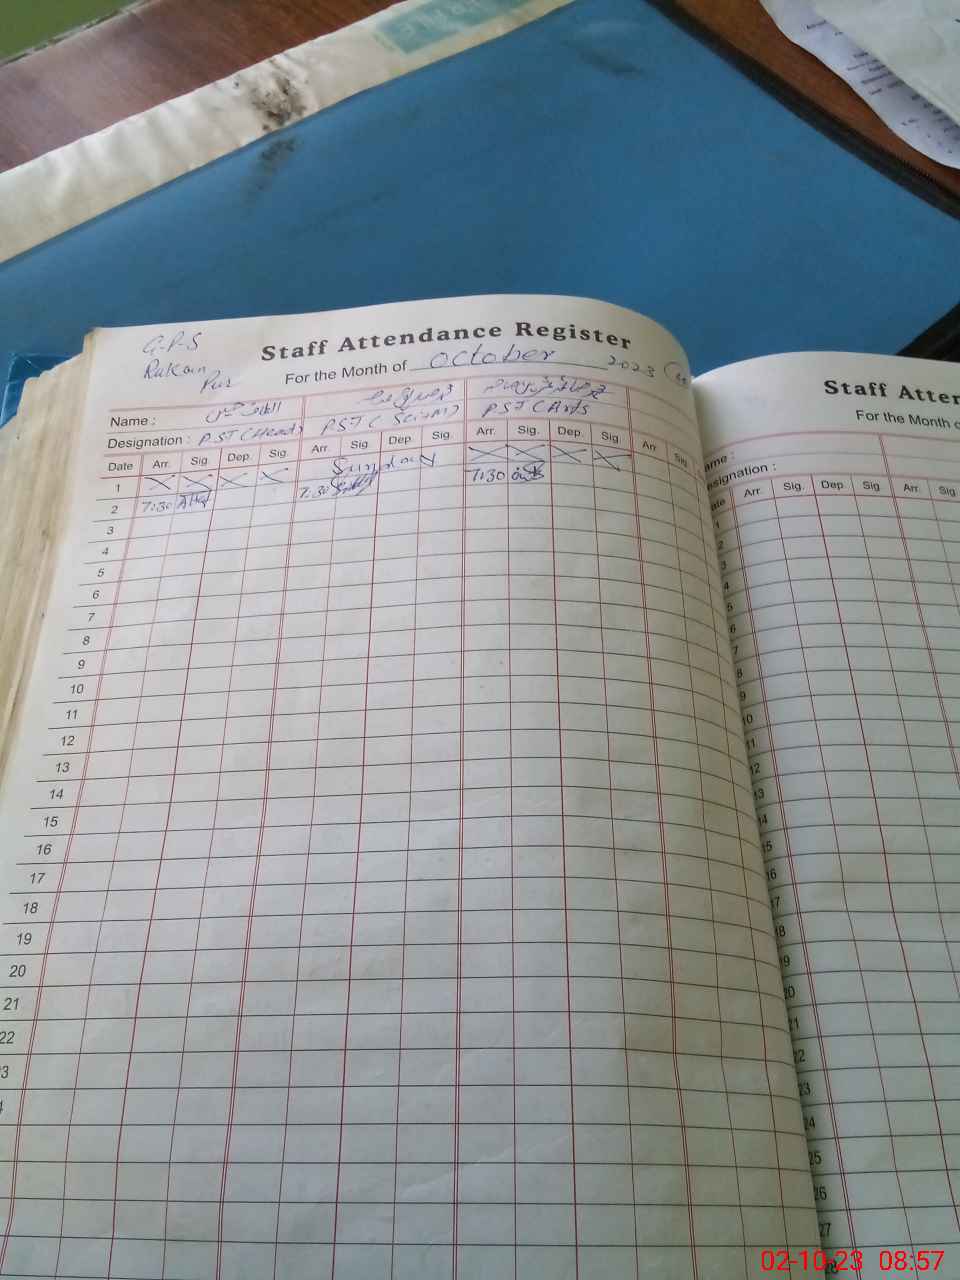 G-P-S
Rukan
Pur
Staff Attendance Register
For the Month of October 2023
Name :
Designation : PST (Head) PST ( Scien) PST (Arts
Date Arr. Sig. Dep. Sig. Arr. Sig. Dep. Sig. Arr. Sig. Dep. Sig. Arr. Sig.
1 Sunday
2 7:30 7:30 7:30
3
4
5
6
7
8
9
10
11
12
13
14
15
16
17
18
19
20
21
22
Staff Atten
For the Month
Designation :
Arr. Sig. Dep. Sig. Arr. Sig
25
26
27
28
02-10-23 08:57